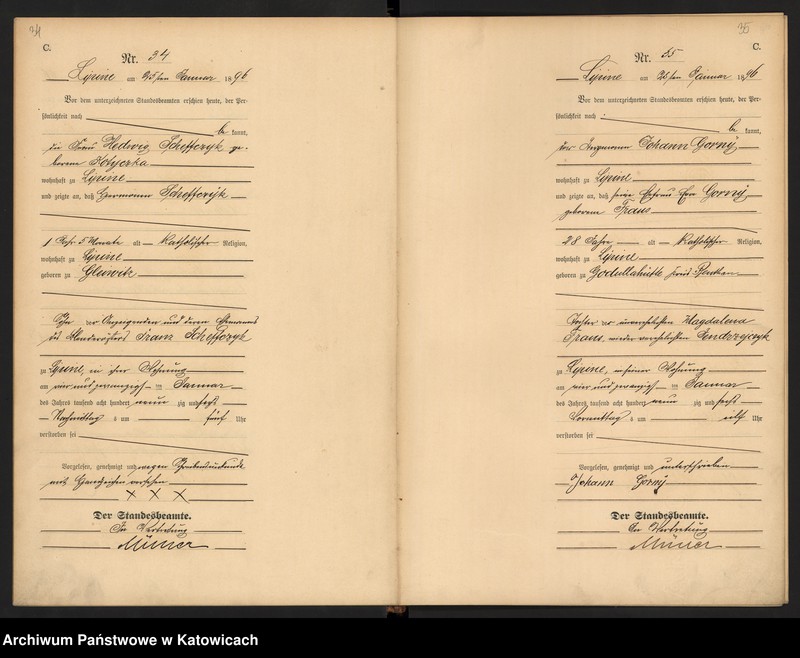 34
C.
Nr. 34
Lipine am 25ten Januar 1896
Vor dem unterzeichneten Standesbeamten erschien heute, der Per-
sönlichkeit nach
be kannt,
die Frau Hedwig Scheffczyk ge-
borene Kotyczka
wohnhaft zu Lipine
und zeigte an, daß Hermann Scheffczyk
1 Jahr 5 Monate alt katholischer Religion,
wohnhaft zu Lipine
geboren zu Gleiwitz
Sohn der Anzeigenden und deren Ehemannes
des Franz Scheffczyk
zu Lipine, in ihrer Wohnung
am vier und zwanzigsten Januar
des Jahres tausend acht hundert neun zig und sechs
Nachmittag s um fünf Uhr
verstorben sei
Vorgelesen, genehmigt und wegen Schreibensunkunde
mit Handzeichen versehen
X X X
Der Standesbeamte.
In Vertretung
Müller
35
C.
Nr. 35
Lipine am 25ten Januar 1896
Vor dem unterzeichneten Standesbeamten erschien heute, der Per-
sönlichkeit nach
be kannt,
der Johann Gorny
wohnhaft zu Lipine
und zeigte an, daß seine Ehefrau Gorny
geborene Franz
28 Jahre alt katholischer Religion,
wohnhaft zu Lipine
geboren zu Godullahütte Kreis Beuthen
Tochter der unverehelichten Magdalena
Franz,
zu Lipine, in seiner Wohnung
am vier und zwanzigsten Januar
des Jahres tausend acht hundert neun zig und sechs
Vormittag s um elf Uhr
verstorben sei
Vorgelesen, genehmigt und unterschrieben
Johann Gorny
Der Standesbeamte.
In Vertretung
Müller
Archiwum Państwowe w Katowicach